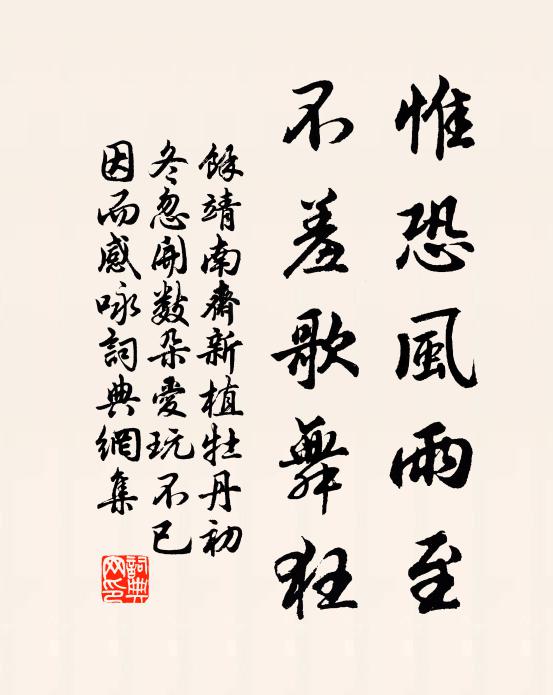 惟恐風雨至
不羞歌舞狂
餘靖南齋新植牡丹初
冬忽開數朵愛玩不已
因而感咏詞典網集
詞典網印